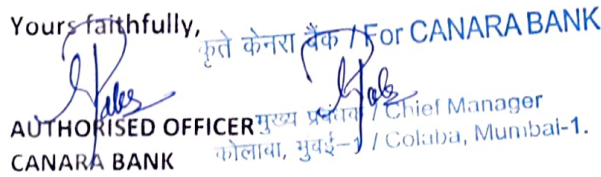 Yours faithfully,
कृते केनरा बैंक / For CANARA BANK
AUTHORISED OFFICER मुख्य प्रबंधक / Chief Manager
CANARA BANK कोलाबा, मुंबई-1 / Colaba, Mumbai-1.